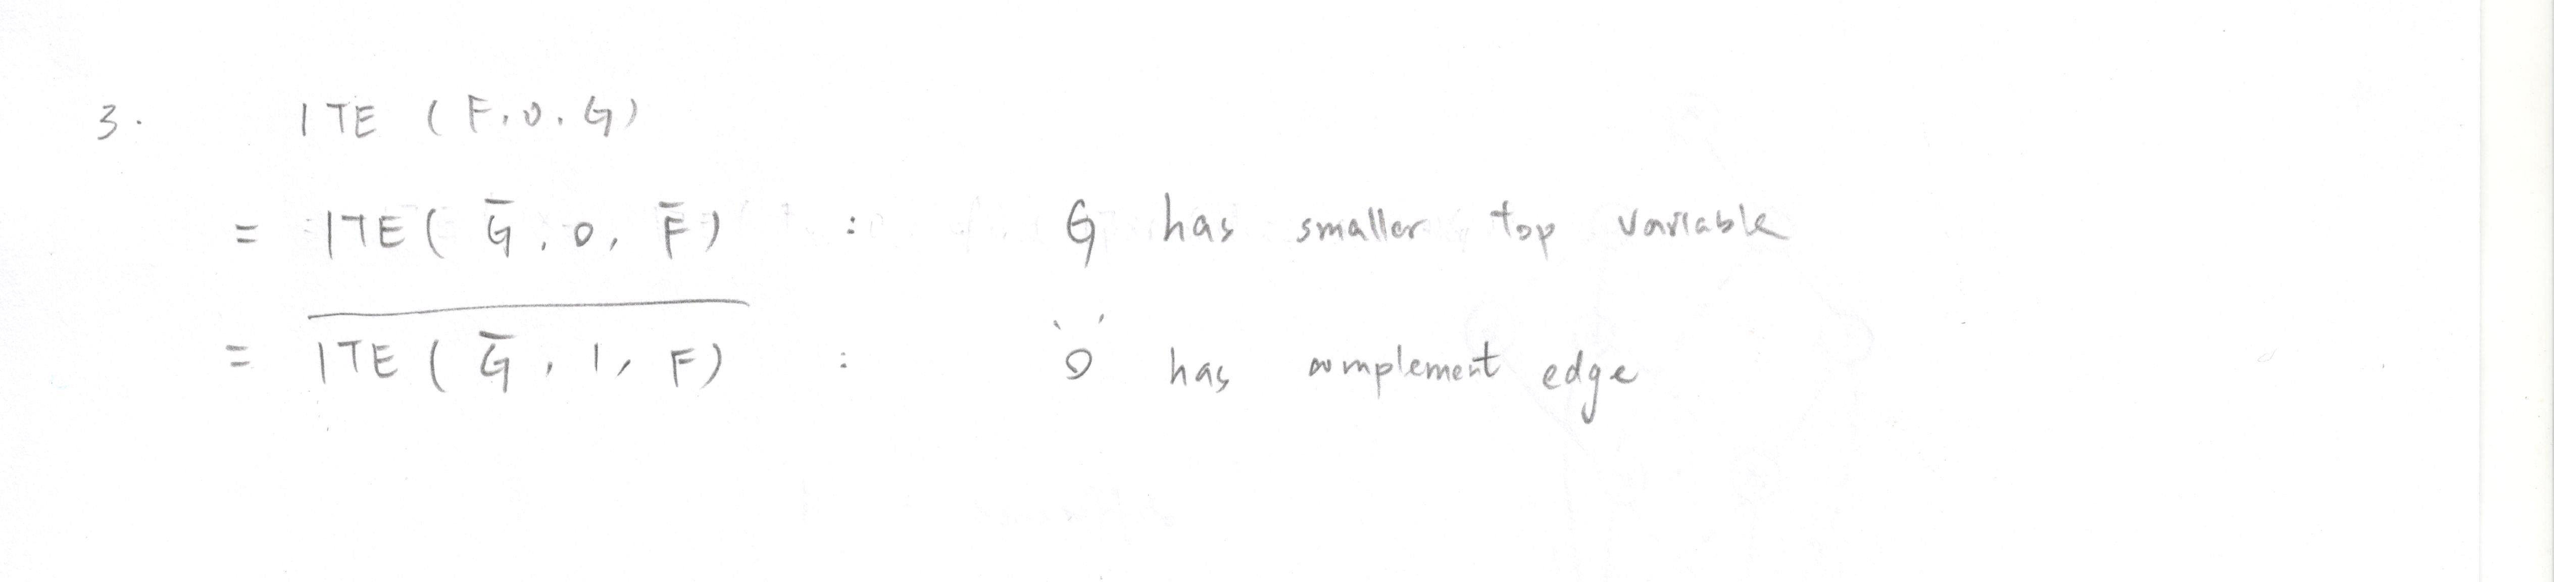 3. ITE (F, 0, G)
= ITE ( G̅, 0, F̅ ) : G has smaller top variable
= \overline{ITE ( G̅, 1, F )} : 0 has complement edge